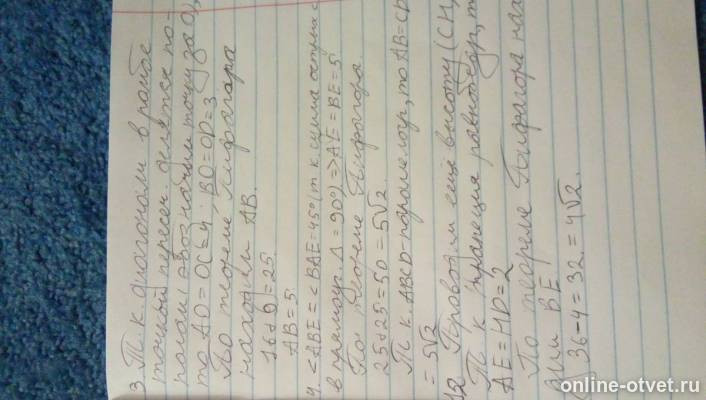 3. Т.к. диагонали в ромбе
точкой пересеч. делятся по-
полам (обозначим точку за О),
то АО=ОС=4; ВО=ОD=3
По теореме Пифагора
находим АВ.
16+9=25.
АВ=5.
4. <ABE=<BAE=45°(т.к. сумма острых
в прямоуг. Δ=90°)=>AE=BE=5
По теореме Пифагора
25+25=50=5√2
Т.к. ABCD-параллелогр, то АВ=CD
=5√2
12 Проводим ещё высоту (СН)
Т.к. трапеция равнобедр, т
AE=HD=2
По теореме Пифагора нах
BE
√36-4=32=4√2.
online-otvet.ru